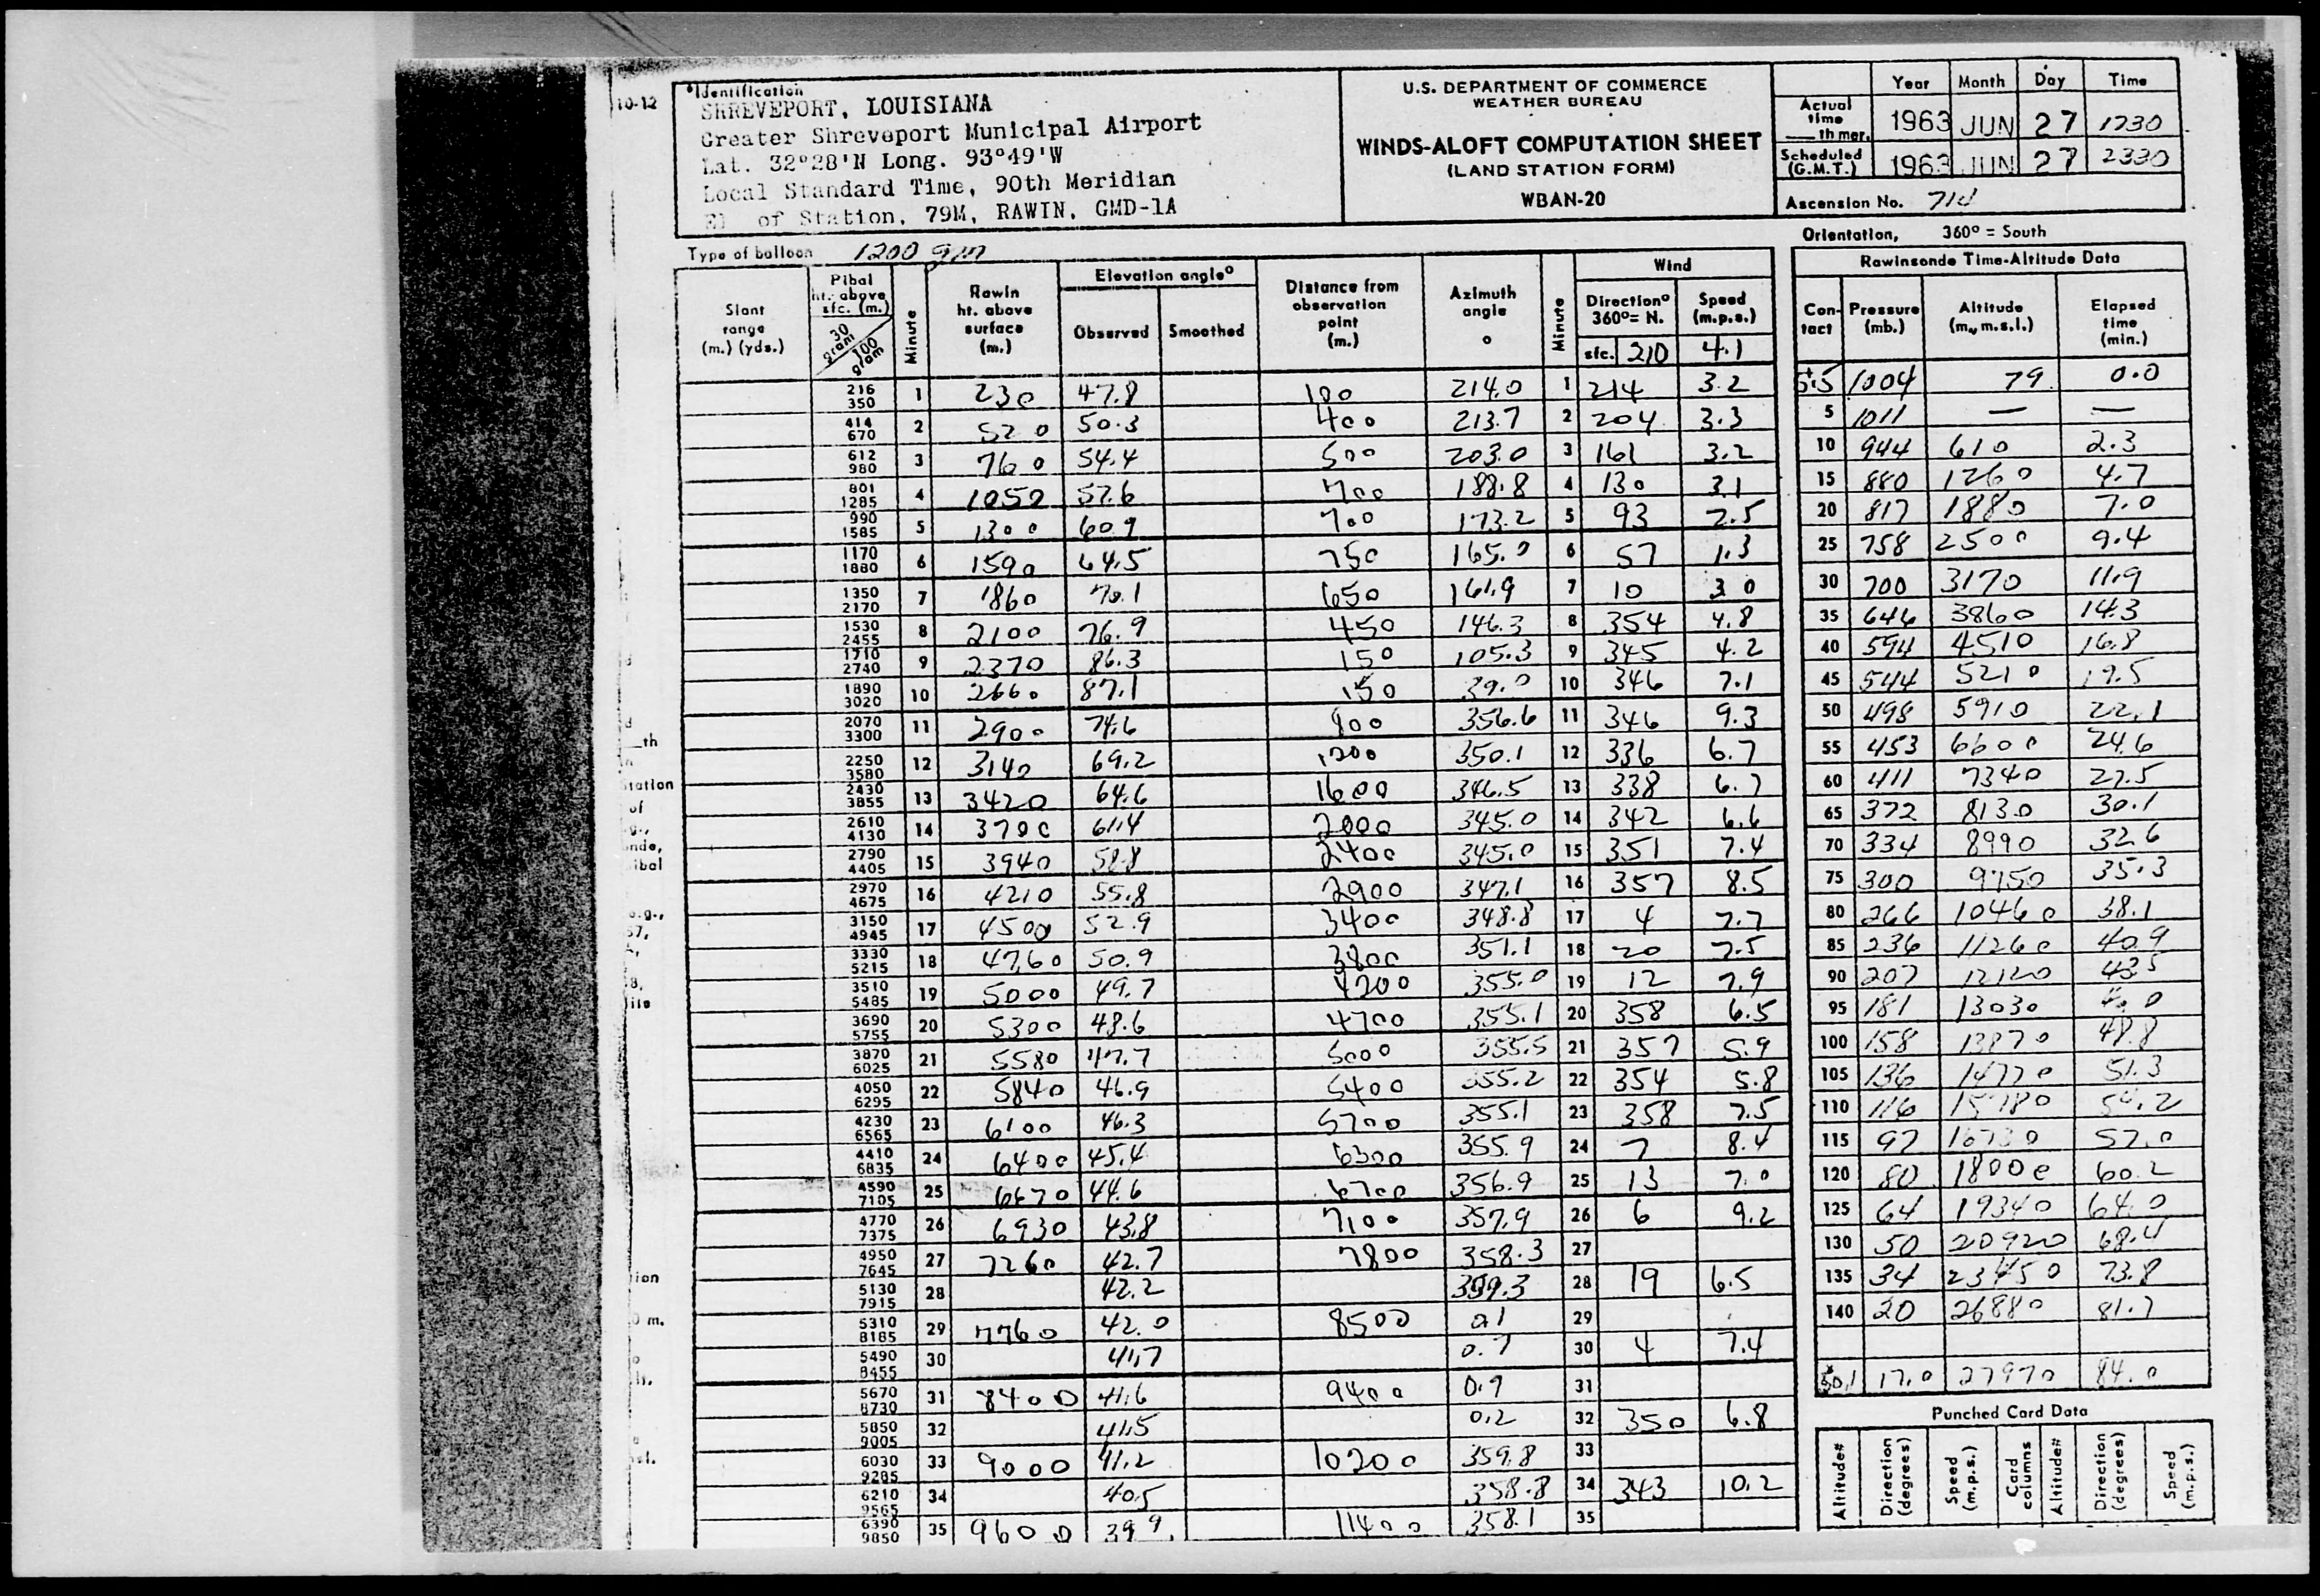 10-12
Identification
SHREVEPORT, LOUISIANA
Greater Shreveport Municipal Airport
Lat. 32°28'N Long. 93°49'W
Local Standard Time, 90th Meridian
El of Station, 79M, RAWIN, GMD-1A
U.S. DEPARTMENT OF COMMERCE
WEATHER BUREAU
WINDS-ALOFT COMPUTATION SHEET
(LAND STATION FORM)
WBAN-20
Year Month Day Time
Actual time th mer. 1963 JUN 27 1730
Scheduled (G.M.T.) 1963 JUN 27 2330
Ascension No. 714
Type of balloon 1200 gm
Orientation, 360° = South
Slant range (m.) (yds.)
Pibal ht. above sfc. (m.) 30 gram 100 gram
Minute
Rawin ht. above surface (m.)
Elevation angle°
Observed Smoothed
Distance from observation point (m.)
Azimuth angle °
Minute
Wind
Direction° 360°= N. Speed (m.p.s.)
sfc. 210 4.1
216 350 1 230 47.8 100 214.0 1 214 3.2
414 670 2 520 50.3 400 213.7 2 204 3.3
612 980 3 760 54.4 500 203.0 3 161 3.2
801 1285 4 1050 57.6 700 188.8 4 130 3.1
990 1585 5 1300 60.9 700 173.2 5 93 2.5
1170 1880 6 1590 64.5 750 165.0 6 57 1.3
1350 2170 7 1860 70.1 650 161.9 7 10 3.0
1530 2455 8 2100 76.9 450 146.3 8 354 4.8
1710 2740 9 2370 86.3 150 105.3 9 345 4.2
1890 3020 10 2660 87.1 150 39.0 10 346 7.1
2070 3300 11 2900 74.6 800 356.6 11 346 9.3
2250 3580 12 3140 69.2 1200 350.1 12 336 6.7
2430 3855 13 3420 64.6 1600 346.5 13 338 6.7
2610 4130 14 3700 61.4 2000 345.0 14 342 6.6
2790 4405 15 3940 58.8 2400 345.0 15 351 7.4
2970 4675 16 4210 55.8 2900 347.1 16 357 8.5
3150 4945 17 4500 52.9 3400 348.8 17 4 7.7
3330 5215 18 4760 50.9 3800 351.1 18 20 7.5
3510 5485 19 5000 49.7 4200 355.0 19 12 7.9
3690 5755 20 5300 48.6 4700 355.1 20 358 6.5
3870 6025 21 5580 47.7 5000 355.5 21 357 5.9
4050 6295 22 5840 46.9 5400 355.2 22 354 5.8
4230 6565 23 6100 46.3 5700 355.1 23 358 7.5
4410 6835 24 6400 45.4 6300 355.9 24 7 8.4
4590 7105 25 6670 44.6 6700 356.9 25 13 7.0
4770 7375 26 6930 43.8 7100 357.9 26 6 9.2
4950 7645 27 7260 42.7 7800 358.3 27
5130 7915 28 42.2 359.3 28 19 6.5
5310 8185 29 7760 42.0 8500 0.1 29
5490 8455 30 41.7 0.7 30 4 7.4
5670 8730 31 8400 41.6 9400 0.9 31
5850 9005 32 41.5 0.2 32 350 6.8
6030 9285 33 9000 41.2 10200 359.8 33
6210 9565 34 40.5 358.8 34 343 10.2
6390 9850 35 9600 39.9 11400 358.1 35
Rawinsonde Time-Altitude Data
Contact Pressure (mb.) Altitude (m., m.s.l.) Elapsed time (min.)
5.5 1004 79 0.0
5 1011 — —
10 944 610 2.3
15 880 1260 4.7
20 817 1880 7.0
25 758 2500 9.4
30 700 3170 11.9
35 646 3860 14.3
40 594 4510 16.8
45 544 5210 19.5
50 498 5910 22.1
55 453 6600 24.6
60 411 7340 27.5
65 372 8130 30.1
70 334 8990 32.6
75 300 9750 35.3
80 266 10460 38.1
85 236 11260 40.9
90 207 12120 43.5
95 181 13030
100 158 13870 48.8
105 136 14770 51.3
110 116 15780 54.2
115 97 16730 57.0
120 80 18000 60.2
125 64 19340 64.0
130 50 20920 68.4
135 34 23450 73.8
140 20 26880 81.7
17.0 27970 84.0
Punched Card Data
Altitude# Direction (degrees) Speed (m.p.s.) Card columns Altitude# Direction (degrees) Speed (m.p.s.)
th
station
of
ibal
ion